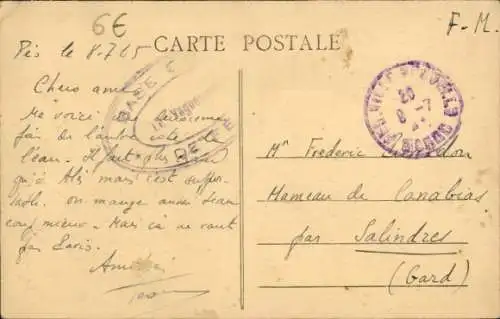 6€
F. M.
CARTE POSTALE
Fès le 8-7-25
Chers amis
Me voici
fois de l'autre côté de
l'eau. Il fait plus
qu'à Alès mais c'est suppor-
table. on mange aussi beau
coup mieux. Mais ça ne vaut
pas Paris.
FES-VILLE NOUVELLE
MAROC
20
8 -7
Mr Frederic
Hameau de Canabias
par Salindres
(Gard)